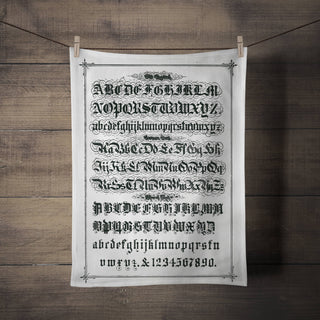 Old English.
ABCDEFGHIKLM
NOPQRSTUVWXYZ
abcdefghijklmnopqrstuvwxyz
German Text.
Aa Bb Cc Dd Ee Ff Gg Hh
Ii Jj Kk Ll Mm Nn Oo Pp Qq
Rr Ss Tt Uu Vv Ww Xx Yy Zz
ABCDEFGHIJKLMN
OPQRSTUVWXYZ
abcdefghijklmnopqrstu
vwxyz. & 1234567890.